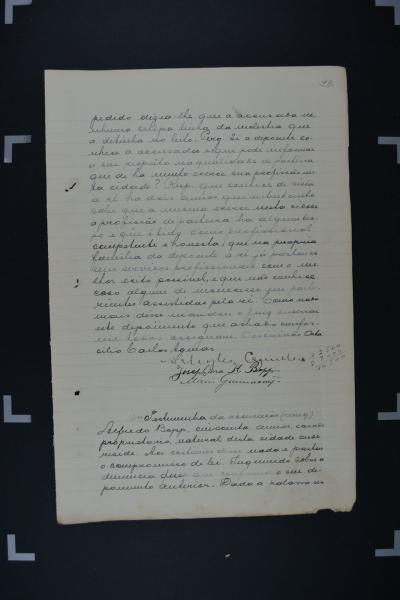 pedido dizia-lhe que a accusada ne
nhuma culpa tinha da molestia que
a detinha no leito. Perg. Se a depoente co
nhece a accusada e que pode informar
a seu respeito na qualidade de parteira
que de ha muito exerce sua profissão nes
ta cidade? Resp. que conhece de vista
a ré ha dois annos, que
sabe que a mesma exerce nesta cidade
a profissão de parteira ha algum tem
po e que é tida como profissional
competente e honesta; que na propria
familia da depoente a ré já prestou
seus serviços profissionaes com o me
lhor exito possivel, e que não conhece
caso algum de insuccesso em partu
rientes assistidas pela ré. Como nada
mais disse mandou o Juiz encerrar
este depoimento que achado confor
me todos assignam. Escrivão
Carlos Aguiar
Josephina H. Bopp
Testemunha da accusação
Alfredo Bopp, cincoenta annos, casado
proprietario, natural desta cidade onde
reside. Aos costumes disse nada e prestou
o compromisso de lei. Inquirido sobre a
denuncia disse que confirma o seu de
poimento anterior. Dada a palavra ao